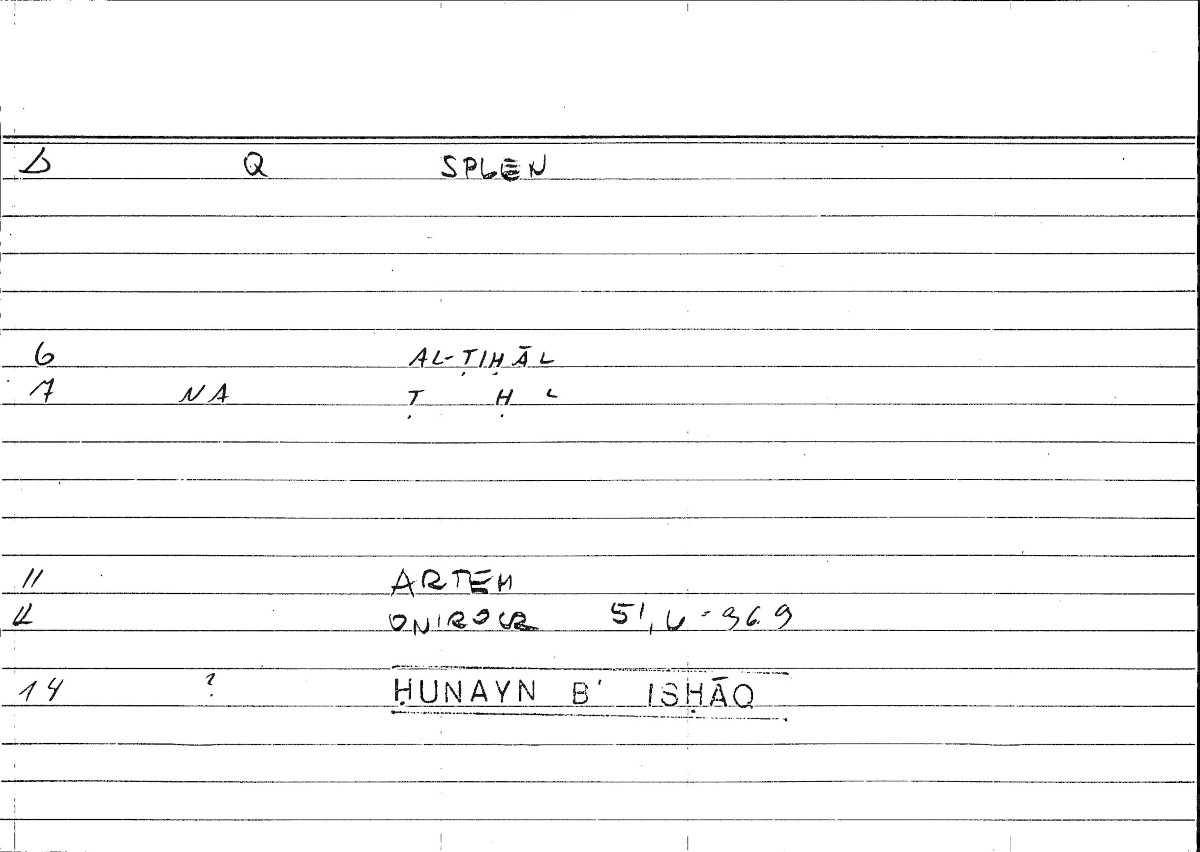 Q SPLEN
6 AL-ṬIḤĀL
7 NA Ṭ Ḥ L
11 ARTEM
ONIROCR 51,6-96.9
14 ? ḤUNAYN B' ISḤĀQ